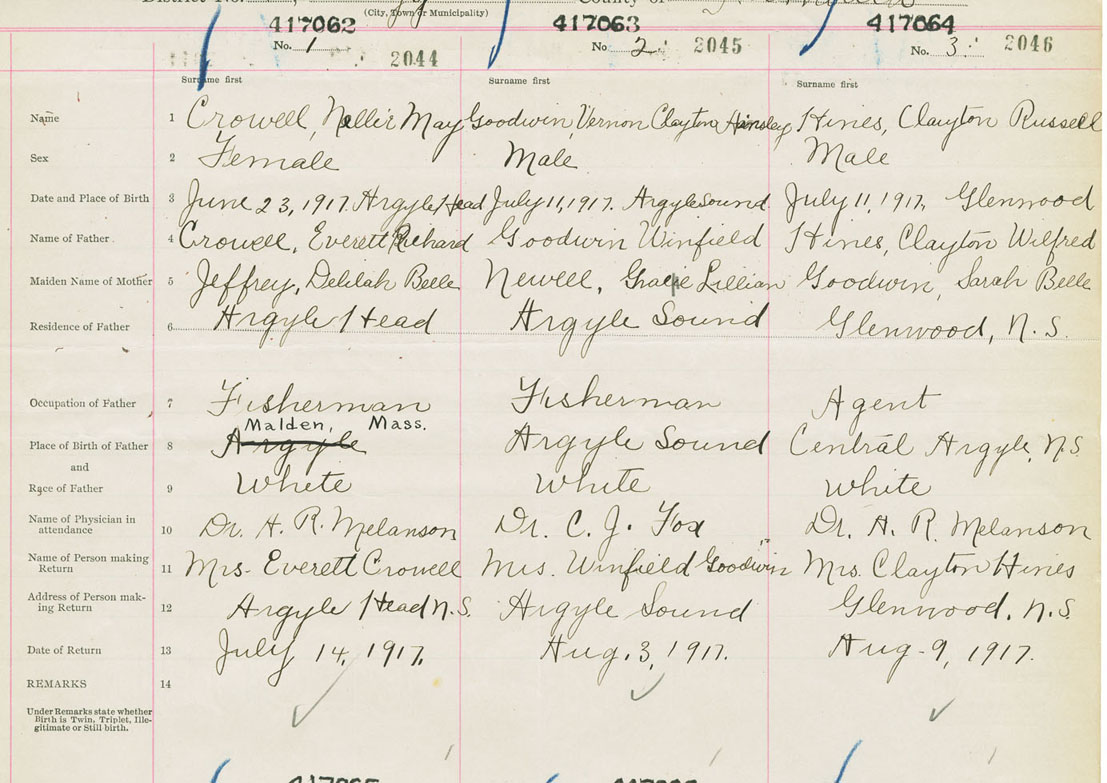 District No.
County of
(City, Town or Municipality)
417062 417063 417064
No. 1 2044 No 2 2045 No. 3 2046
Surname first Surname first Surname first
Name 1 Crowell, Nellie May Goodwin, Vernon Clayton Ainsley Hines, Clayton Russell
Sex 2 Female Male Male
Date and Place of Birth 3 June 23, 1917. Argyle Head July 11, 1917. Argyle Sound July 11, 1917, Glenwood
Name of Father 4 Crowell, Everett Richard Goodwin Winfield Hines, Clayton Wilfred
Maiden Name of Mother 5 Jeffrey, Delilah Belle Newell, Gracie Lillian Goodwin, Sarah Belle
Residence of Father 6 Argyle Head Argyle Sound Glenwood, N.S.
Occupation of Father 7 Fisherman Fisherman Agent
Malden, Mass.
Place of Birth of Father 8 Argyle Argyle Sound Central Argyle, N.S
and
Race of Father 9 White White White
Name of Physician in
attendance 10 Dr. H. R. Melanson Dr. C. J. Fox Dr. H. R. Melanson
Name of Person making
Return 11 Mrs. Everett Crowell Mrs. Winfield Goodwin Mrs. Clayton Hines
Address of Person mak-
ing Return 12 Argyle Head N.S. Argyle Sound Glenwood, N.S.
Date of Return 13 July 14, 1917. Aug. 3, 1917. Aug. 9, 1917.
REMARKS 14
Under Remarks state whether
Birth is Twin, Triplet, Ille-
gitimate or Still birth.